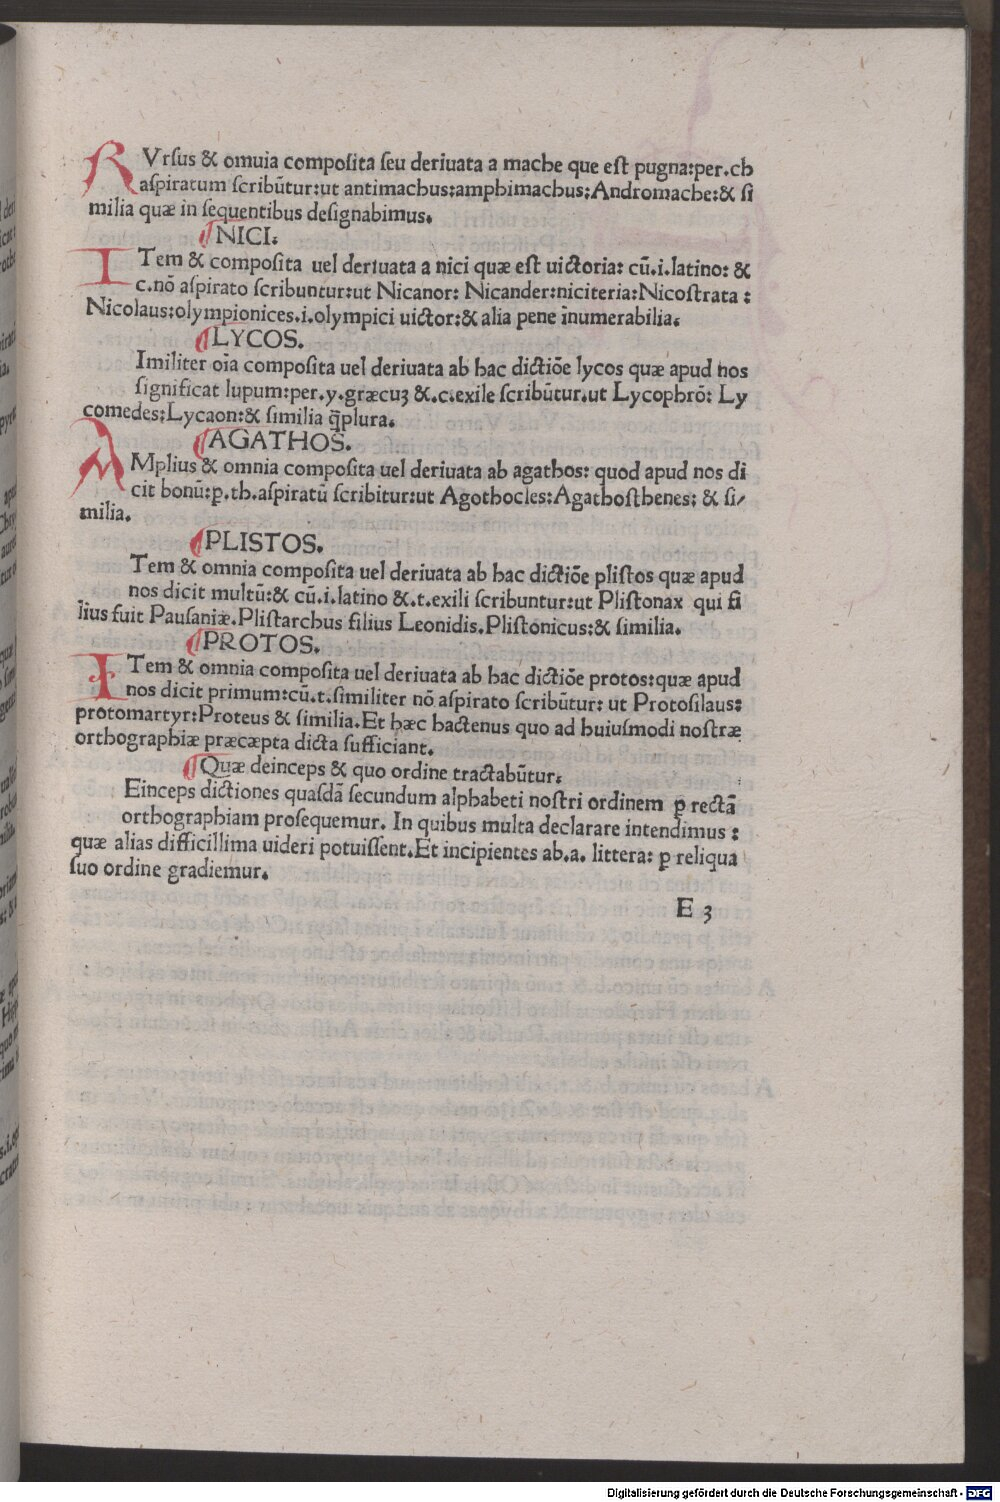 RVrſus & omuia compoſita ſeu deriuata a mache que eſt pugna:per.ch
aſpiratum ſcribūtur:ut antimachus:amphimachus:Andromache:& ſi
milia quæ in ſequentibus deſignabimus.
¶NICI.
ITem & compoſita uel deriuata a nici quæ eſt uictoria: cū.i.latino: &
c.nō aſpirato ſcribuntur:ut Nicanor: Nicander:niciteria:Nicoſtrata :
Nicolaus:olympionices.i.olympici uictor:& alia pene īnumerabilia.
¶LYCOS.
Imiliter oīa compoſita uel deriuata ab hac dictiōe lycos quæ apud nos
ſignificat lupum:per.y.græcuꝫ &.c.exile ſcribūtur.ut Lycophrō: Ly
comedes:Lycaon:& ſimilia q̄plura.
¶AGATHOS.
AMplius & omnia compoſita uel deriuata ab agathos: quod apud nos di
cit bonū:ꝑ.th.aſpiratū ſcribitur:ut Agothocles:Agathoſthenes: & ſi/
milia.
¶PLISTOS.
Tem & omnia compoſita uel deriuata ab hac dictiōe pliſtos quæ apud
nos dicit multū:& cū.i.latino &.t.exili ſcribuntur:ut Pliſtonax qui fi
lius fuit Pauſaniæ.Pliſtarchus filius Leonidis.Pliſtonicus:& ſimilia.
¶PROTOS.
ITem & omnia compoſita uel deriuata ab hac dictiōe protos:quæ apud
nos dicit primum:cū.t.ſimiliter nō aſpirato ſcribūtur: ut Protoſilaus:
protomartyr:Proteus & ſimilia.Et hæc hactenus quo ad huiuſmodi noſtræ
orthographiæ præcæpta dicta ſufficiant.
¶Quæ deinceps & quo ordine tractabūtur.
Einceps dictiones quaſdā ſecundum alphabeti noſtri ordinem ꝑ rectā
orthographiam proſequemur. In quibus multa declarare intendimus :
quæ alias difficillima uideri potuiſſent.Et incipientes ab.a. littera: ꝑ reliqua
ſuo ordine gradiemur.
E 3
Digitalisierung gefördert durch die Deutsche Forschungsgemeinschaft - DFG